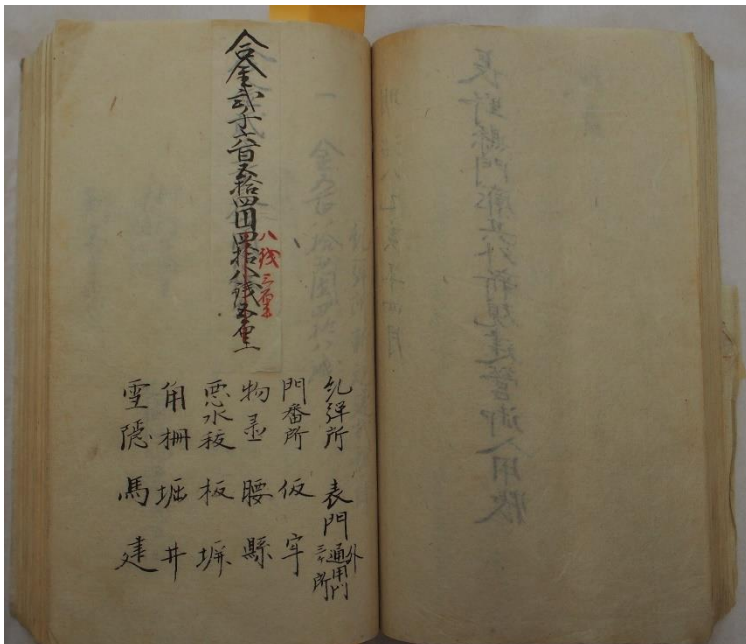 合金弐千六百五拾四円四拾八銭五厘
八銭三厘
糺弾所 表門 外通用門三ヶ所
門番所 仮牢
物置 腰縣
悪水秡 板塀
角柵 堀井
雪隠 馬建